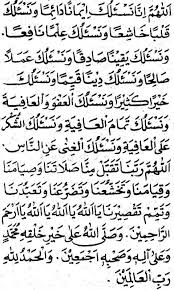 اَللّٰهُمَّ اِنَّا نَسْئَلُكَ اِيْمَانًا دَائِمًا وَنَسْئَلُكَ
قَلْبًا خَاشِعًا وَنَسْئَلُكَ عِلْمًا نَافِعًا.
وَنَسْئَلُكَ يَقِيْنًا صَادِقًا وَنَسْئَلُكَ عَمَلًا
صَالِحًا وَنَسْئَلُكَ دِيْنًا قَيِّمًا وَنَسْئَلُكَ
خَيْرًا كَثِيْرًا وَنَسْئَلُكَ الْعَفْوَ وَالْعَافِيَةَ
وَنَسْئَلُكَ تَمَامَ الْعَافِيَةِ وَنَسْئَلُكَ الشُّكْرَ
عَلَى الْعَافِيَةِ وَنَسْئَلُكَ الْغِنٰى عَنِ النَّاسِ.
اَللّٰهُمَّ رَبَّنَا تَقَبَّلْ مِنَّا صَلَاتَنَا وَصِيَامَنَا
وَقِيَامَنَا وَتَخَشُّعَنَا وَتَضَرُّعَنَا وَتَعَبُّدَنَا
وَتَمِّمْ تَقْصِيْرَنَا يَا اَللهُ يَا اَللهُ يَا اَللهُ يَا اَرْحَمَ
الرَّاحِمِيْنَ. وَصَلَّى اللهُ عَلَى خَيْرِ خَلْقِهِ مُحَمَّدٍ
وَعَلَى اٰلِهِ وَصَحْبِهِ اَجْمَعِيْنَ. وَالْحَمْدُ لِلّٰهِ
رَبِّ الْعَالَمِيْنَ.